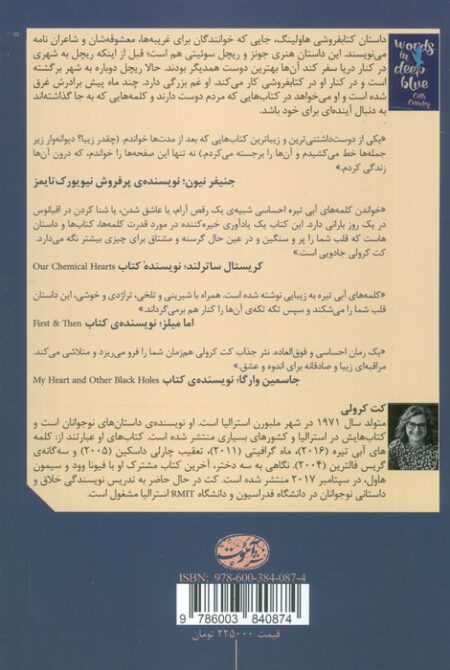 words
in
deep
blue
Cath
Crowley
داستان کتابفروشی هاولینگ، جایی که خوانندگان برای غریبه‌ها، معشوقه‌شان و شاعران نامه
می‌نویسند. این داستان هنری جونز و ریچل سوئیتی هم است؛ قبل از اینکه ریچل به شهری
در کنار دریا سفر کند آن‌ها بهترین دوست همدیگر بودند. حالا ریچل دوباره به شهر برگشته
است و در کنار او در کتابفروشی کار می‌کند. او غم بزرگی دارد. چند ماه پیش برادرش غرق
شده است و او می‌خواهد در کتاب‌هایی که مردم دوست دارند و کلمه‌هایی که به جا گذاشته‌اند
به دنبال آینده‌ای برای خود باشد.
«یکی از دوست‌داشتنی‌ترین و زیباترین کتاب‌هایی که بعد از مدت‌ها خواندم. (چقدر زیبا؟ دیوانه‌وار زیر
جمله‌ها خط می‌کشیدم و آن‌ها را برجسته می‌کردم.) نه تنها این صفحه‌ها را خواندم، که درون آن‌ها
زندگی کردم.»
جنیفر نیون؛ نویسنده‌ی پرفروش نیویورک‌تایمز
«خواندن کلمه‌های آبی تیره احساسی شبیه‌ی یک رقص آرام، یا عاشق شدن، یا شنا کردن در اقیانوس
در یک روز بارانی دارد. این کتاب یک یادآوری خیره‌کننده در مورد قدرت کلمه‌ها، کتاب‌ها و داستان
هاست که قلب شما را پر و سنگین و در عین حال گرسنه و مشتاق برای چیزی بیشتر نگه می‌دارد.
کت کرولی جادویی است.»
کریستال ساترلند؛ نویسنده کتاب Our Chemical Hearts
«کلمه‌های آبی تیره به زیبایی نوشته شده است. همراه با شیرینی و تلخی، تراژدی و خوشی، این داستان
قلب شما را می‌شکند و سپس تکه تکه‌ی آن‌ها را کنار هم برمی‌گرداند.»
اما میلز؛ نویسنده‌ی کتاب First & Then
«یک رمان احساسی و فوق‌العاده. نثر جذاب کت کرولی هم‌زمان شما را فرو می‌ریزد و متلاشی می‌کند.
مراقبه‌ای زیبا و صادقانه برای اندوه و عشق.»
جاسمین وارگا؛ نویسنده‌ی کتاب My Heart and Other Black Holes
کت کرولی
متولد سال ۱۹۷۱ در شهر ملبورن استرالیا است. او نویسنده‌ی داستان‌های نوجوانان است و
کتاب‌هایش در استرالیا و کشورهای بسیاری منتشر شده است. کتاب‌های او عبارتند از: کلمه
های آبی تیره (۲۰۱۶)، ماه گرافیتی (۲۰۱۱)، تعقیب چارلی داسکین (۲۰۰۵) و سه‌گانه‌ی
گریس فالترین (۲۰۰۴). نگاهی به سه دختر، آخرین کتاب مشترک او با فیونا وود و سیمون
هاول، در سپتامبر ۲۰۱۷ منتشر شده است. کت در حال حاضر به تدریس نویسندگی خلاق و
داستانی نوجوانان در دانشگاه فدراسیون و دانشگاه RMIT استرالیا مشغول است.
نشر آموت
ISBN: 978-600-384-087-4
9 786003 840874
قیمت ۲۲۵۰۰۰ تومان